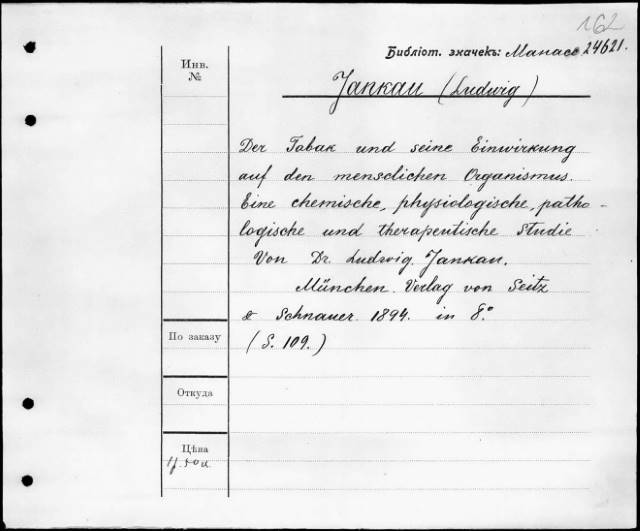 162
Библіот. значекъ: Манасе 24621.
Инв.
№
Jankau (Ludwig)
Der Tabak und seine Einwirkung
auf den menschlichen Organismus.
Eine chemische, physiologische, patho-
logische und therapeutische Studie
Von Dr. Ludwig Jankau.
München. Verlag von Seitz
& Schnauer. 1894. in 8.°
По заказу
(S. 109.)
Откуда
Цѣна